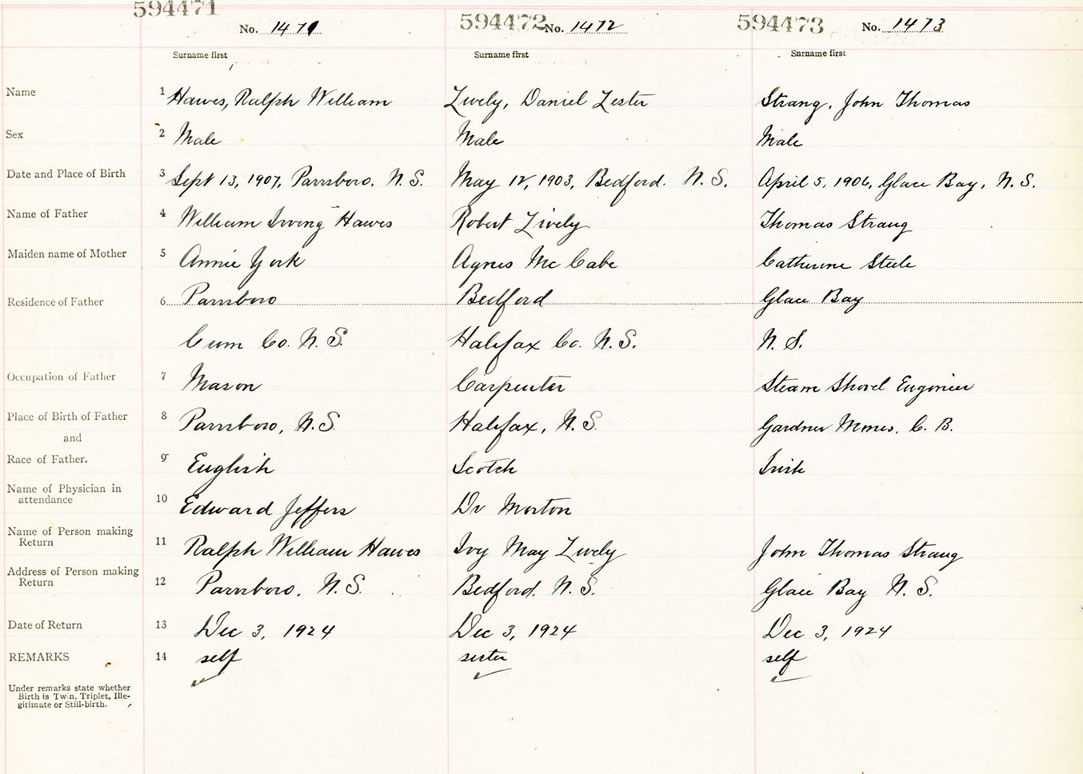 594471 594472 594473
No. 1471 No. 1472 No. 1473
Surname first Surname first Surname first
Name 1 Hawes, Ralph William Lively, Daniel Lester Strang, John Thomas
Sex 2 Male Male Male
Date and Place of Birth 3 Sept 13, 1907, Parrsboro, N.S. May 12, 1903, Bedford. N.S. April 5, 1906, Glace Bay, N.S.
Name of Father 4 William Irving Hawes Robert Lively Thomas Strang
Maiden name of Mother 5 Annie York Agnes Mc Cabe Catherine Steele
Residence of Father 6 Parrsboro Bedford Glace Bay
Cum Co. N.S. Halifax Co. N.S. N.S.
Occupation of Father 7 Mason Carpenter Steam Shovel Engineer
Place of Birth of Father 8 Parrsboro, N.S. Halifax, N.S. Gardner Mines, C.B.
and
Race of Father. 9 English Scotch Irish
Name of Physician in
attendance 10 Edward Jeffers Dr Morton
Name of Person making
Return 11 Ralph William Hawes Ivy May Lively John Thomas Strang
Address of Person making
Return 12 Parrsboro, N.S. Bedford. N.S. Glace Bay N.S.
Date of Return 13 Dec 3, 1924 Dec 3, 1924 Dec 3, 1924
REMARKS 14 self sister self
Under remarks state whether
Birth is Twin, Triplet, Ille-
gitimate or Still-birth.